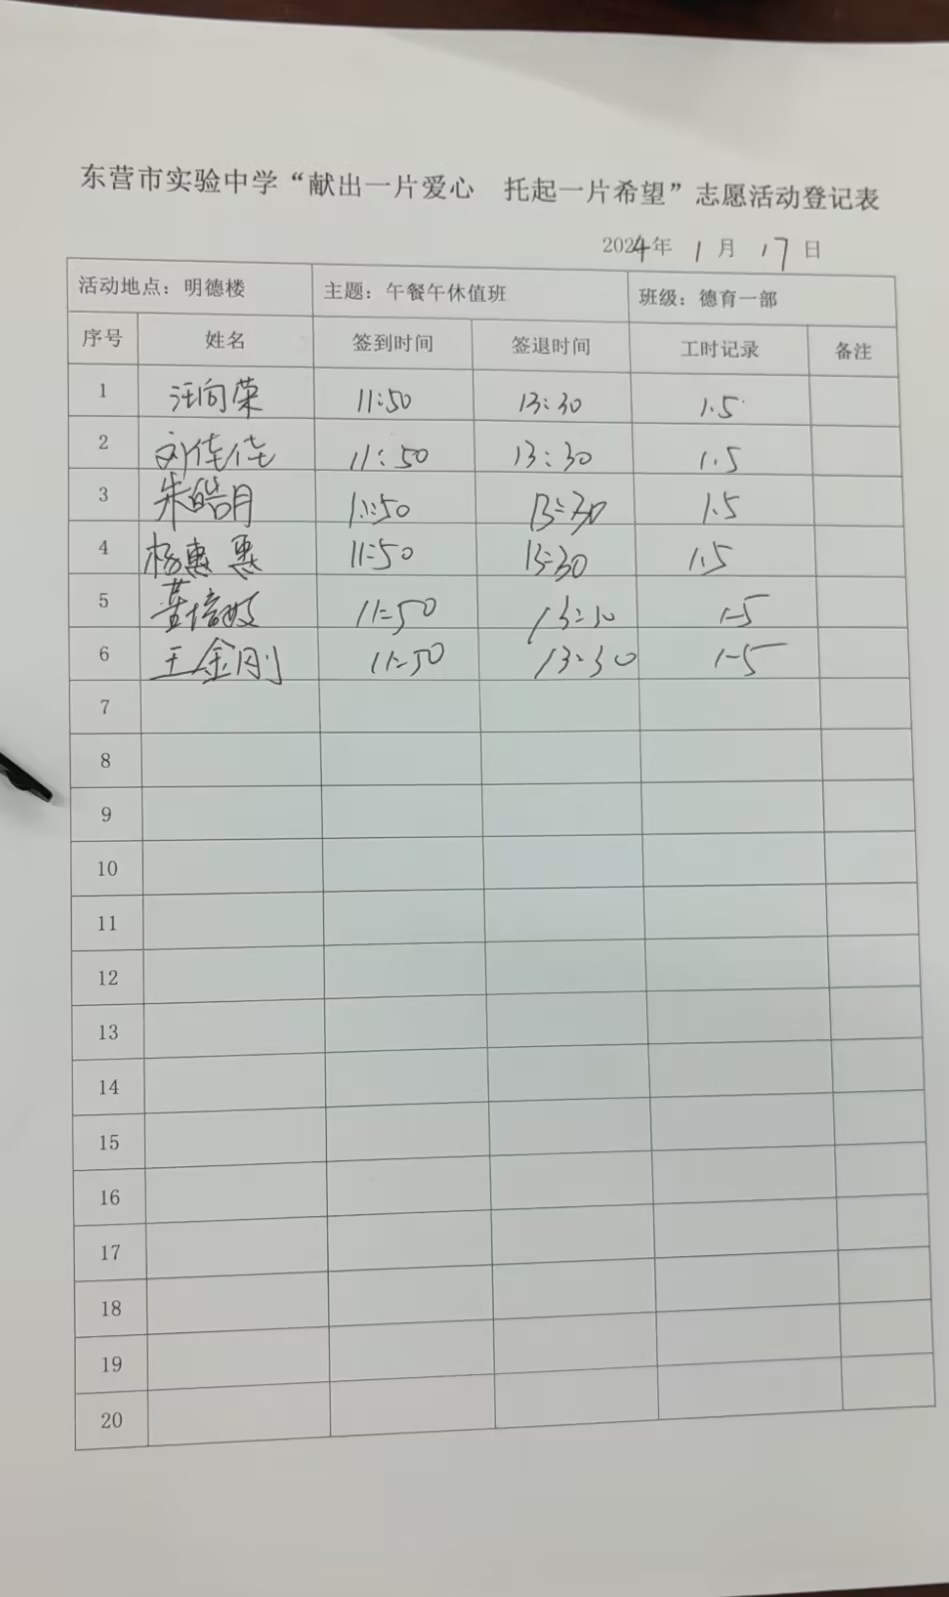 东营市实验中学“献出一片爱心 托起一片希望”志愿活动登记表
2024年 1 月 17 日
活动地点：明德楼 主题：午餐午休值班 班级：德育一部
序号 姓名 签到时间 签退时间 工时记录 备注
1 汪向荣 11:50 13:30 1.5
2 刘佳佳 11:50 13:30 1.5
3 朱皓月 11:50 13:30 1.5
4 杨惠惠 11:50 13:30 1.5
5 董培 11:50 13:30 1.5
6 王金刚 11:50 13:30 1.5
7
8
9
10
11
12
13
14
15
16
17
18
19
20